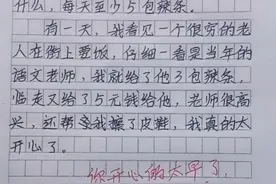 什么，每天至少5包辣条。
有一天，我看见一个很穷的老
人在街上要饭，仔细一看是当年的
语文老师，我就给了他3包辣条，
临走又给了5元钱给他，老师很高
兴，还帮我擦了皮鞋，我真的太
开心了。
你开心的太早了，